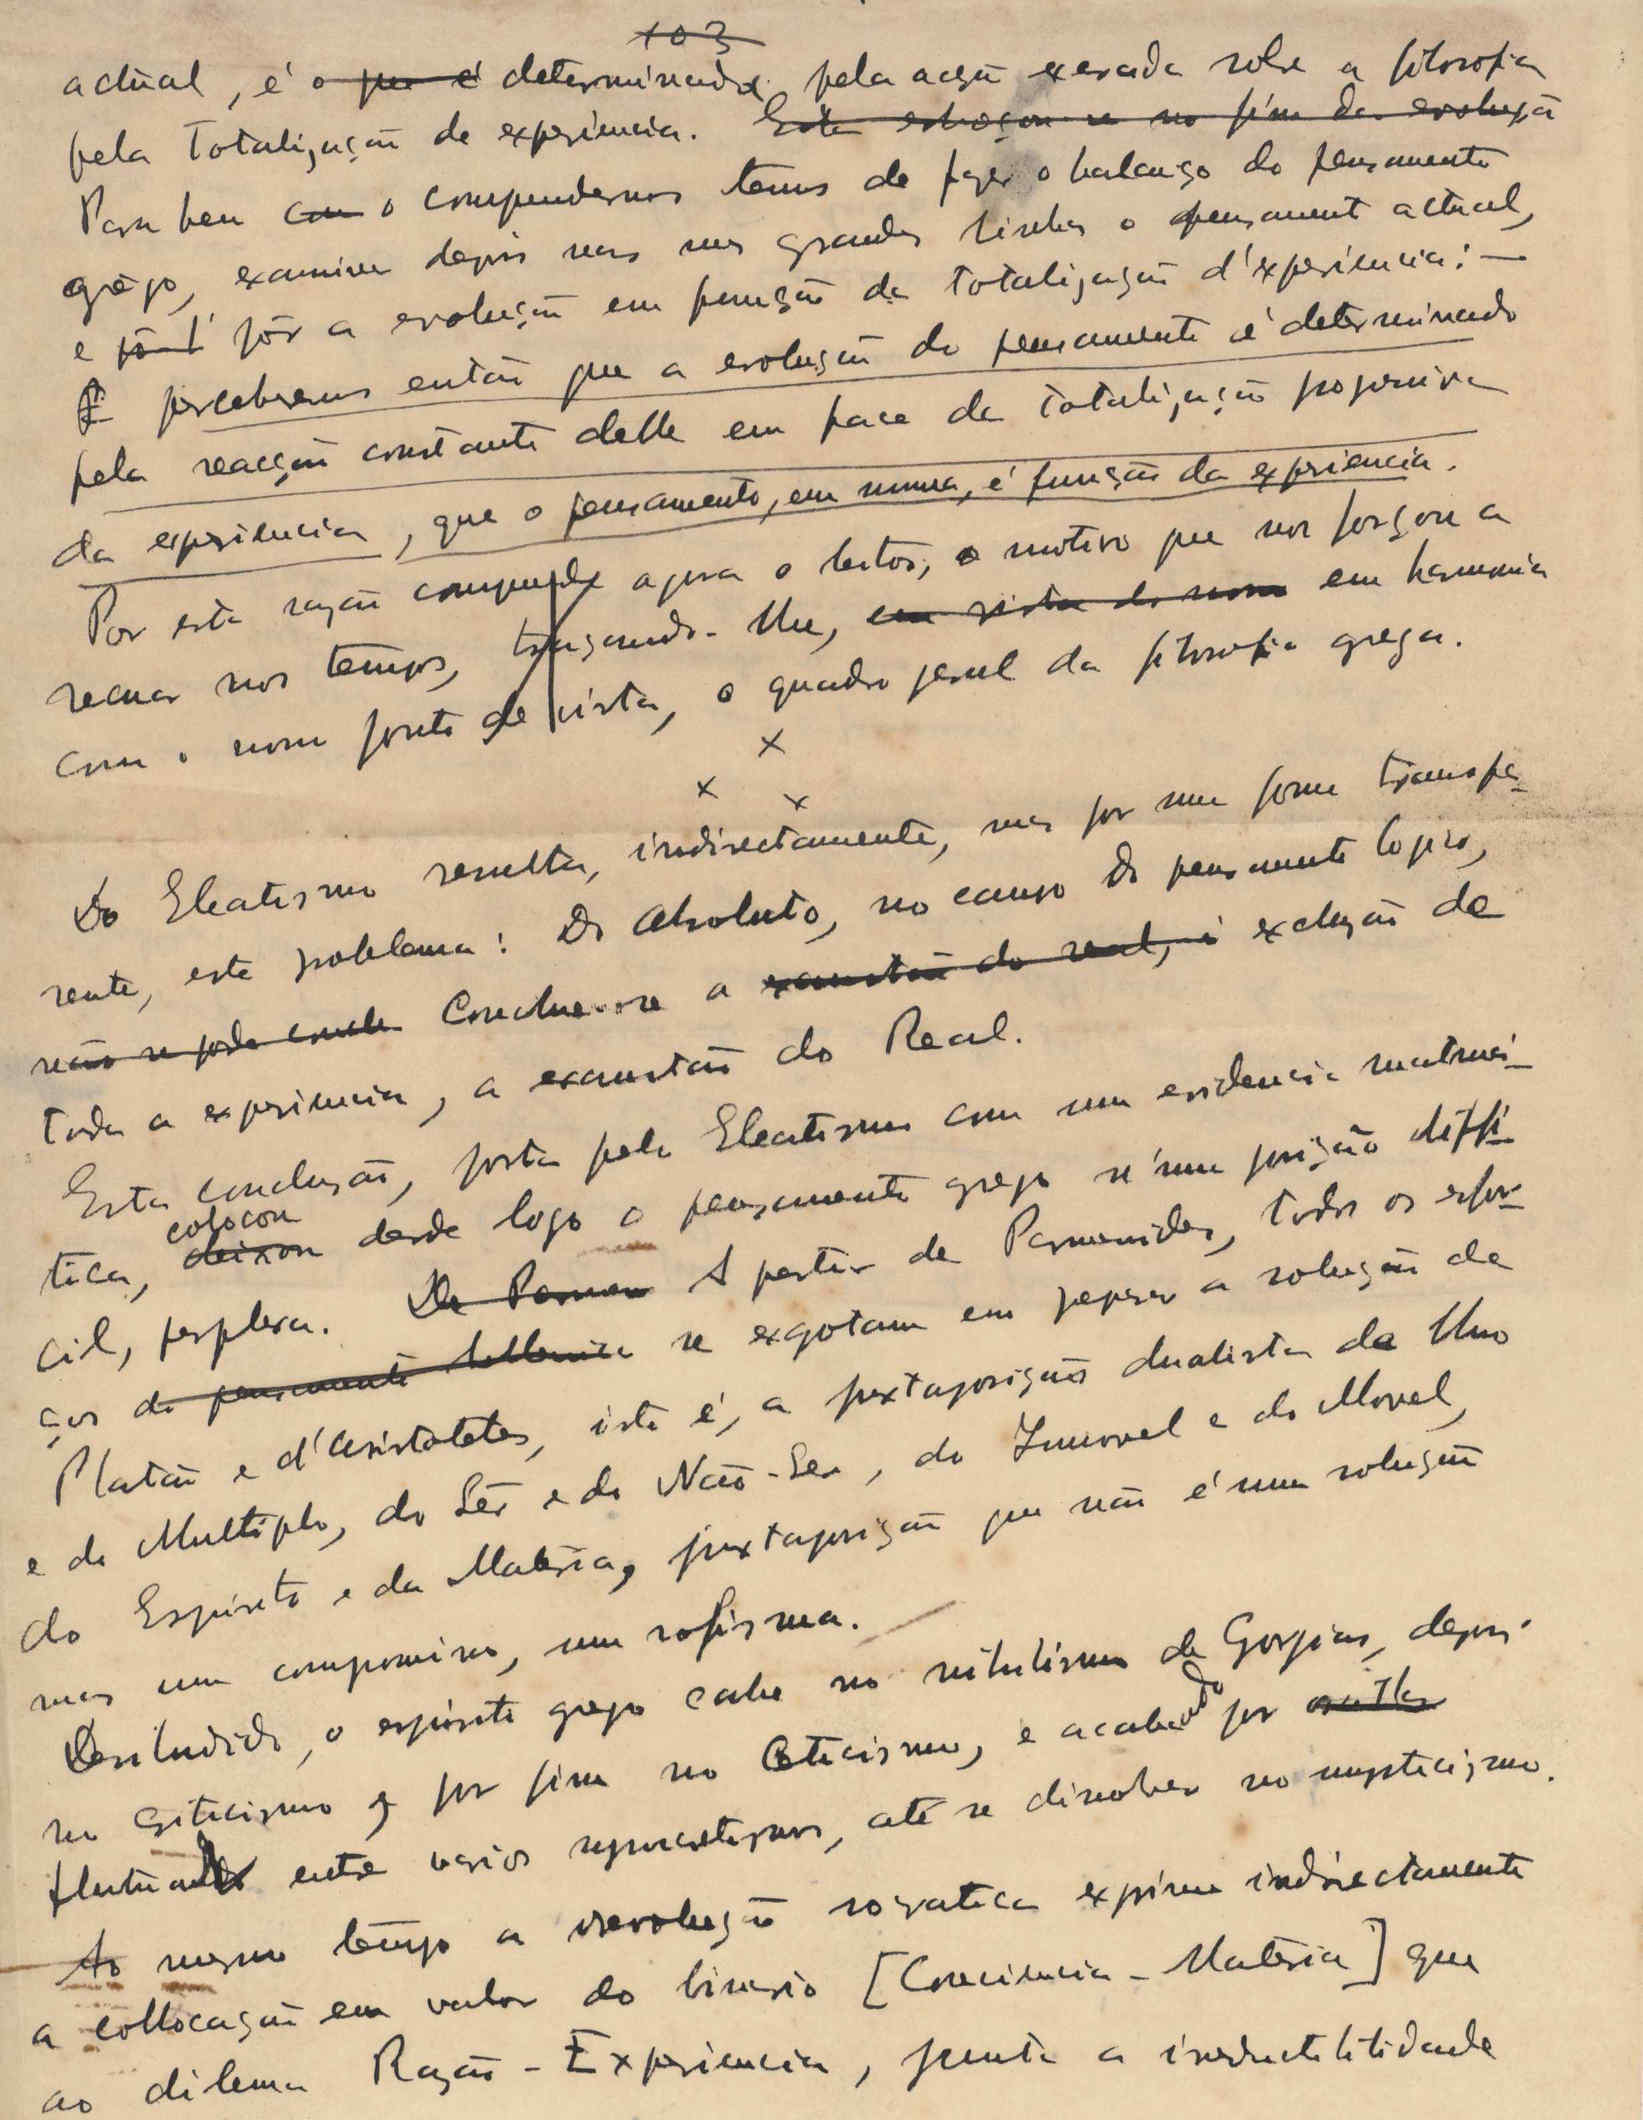 103
actual, é o que é determinado pela acção exercida sobre a filosofia
pela Totalização de experiencia. Esta esboçou-se no fim da evolução
Para bem com o comprendermos temos de fazer o balanço do pensamento
grego, examinar depois nas suas grandes linhas o pensamento actual,
e pôr a evolução em função da totalização d'experiencia: —
E perceberemos então que a evolução do pensamento é determinado
pela reacção constante delle em face da totalização progressiva
da experiencia, que o pensamento, em summa, é função da experiencia.
Por esta razão comprende agora o leitor, o motivo que nos forçou a
recuar nos tempos, traçando-lhe, em vista do nosso em harmonia
com o nosso ponto de vista, o quadro geral da filosofia grega.
x
x x
Do Eleatismo resulta, indirectamente, mas por uma forma transpa-
rente, este problema: Do Absoluto, no campo do pensamento logico,
não se pode conclu Conclue-se a exaustão do real, é exclusão de
toda a experiencia, a exaustão do Real.
Esta conclusão, posta pelo Eleatismo com uma evidencia matemá-
tica, deixou colocou desde logo o pensamento grego n'uma posição diffi-
cil, perplexa. De Parmen A partir de Parmenides, todos os esfor-
ços do pensamento hellenico se exgotam em preparar a solução de
Platão e d'Aristoteles, isto é, a juxtaposição dualista do Uno
e do Multiplo, do Sêr e do Não-Ser, do Immovel e do Movel,
do Espirito e da Materia, juxtaposição que não é uma solução
mas um compromisso, um sofisma.
Desiludido, o espirito grego cahe no nihilismo de Gorgias, depois
no Criticismo e por fim no Ceticismo, e acabando por
flutuar entre varios syncretismos, até se dissolver no mysticismo.
Ao mesmo tempo a revolução socratica exprime indirectamente
a collocação em valor do binario [Consciencia - Materia] que
ao dilema Razão - Experiencia, junta a irreductibilidade